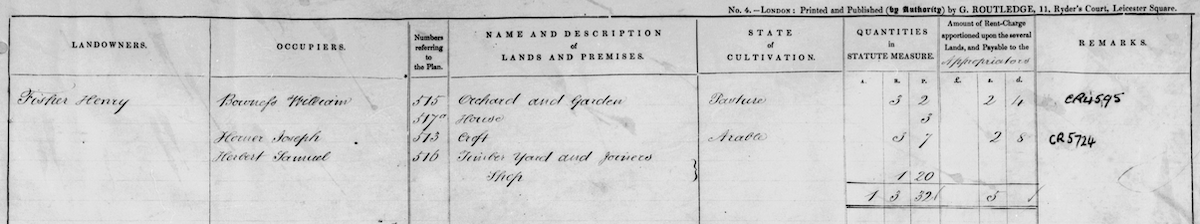 No. 4.—LONDON: Printed and Published (by Authority) by G. ROUTLEDGE, 11, Ryder's Court, Leicester Square.
LANDOWNERS. OCCUPIERS. Numbers referring to the Plan. NAME AND DESCRIPTION of LANDS AND PREMISES. STATE of CULTIVATION. QUANTITIES in STATUTE MEASURE. Amount of Rent-Charge apportioned upon the several Lands, and Payable to the Appropriators REMARKS.
A. R. P. £. s. d.
Fisher Henry Bowness William 515 Orchard and Garden Pasture 3 2 2 4 CR4595
517a House 3
Horner Joseph 513 Croft Arable 3 7 2 8 CR5724
Herbert Samuel 516 Timber Yard and Joiners
Shop } 1 20
1 3 32 5